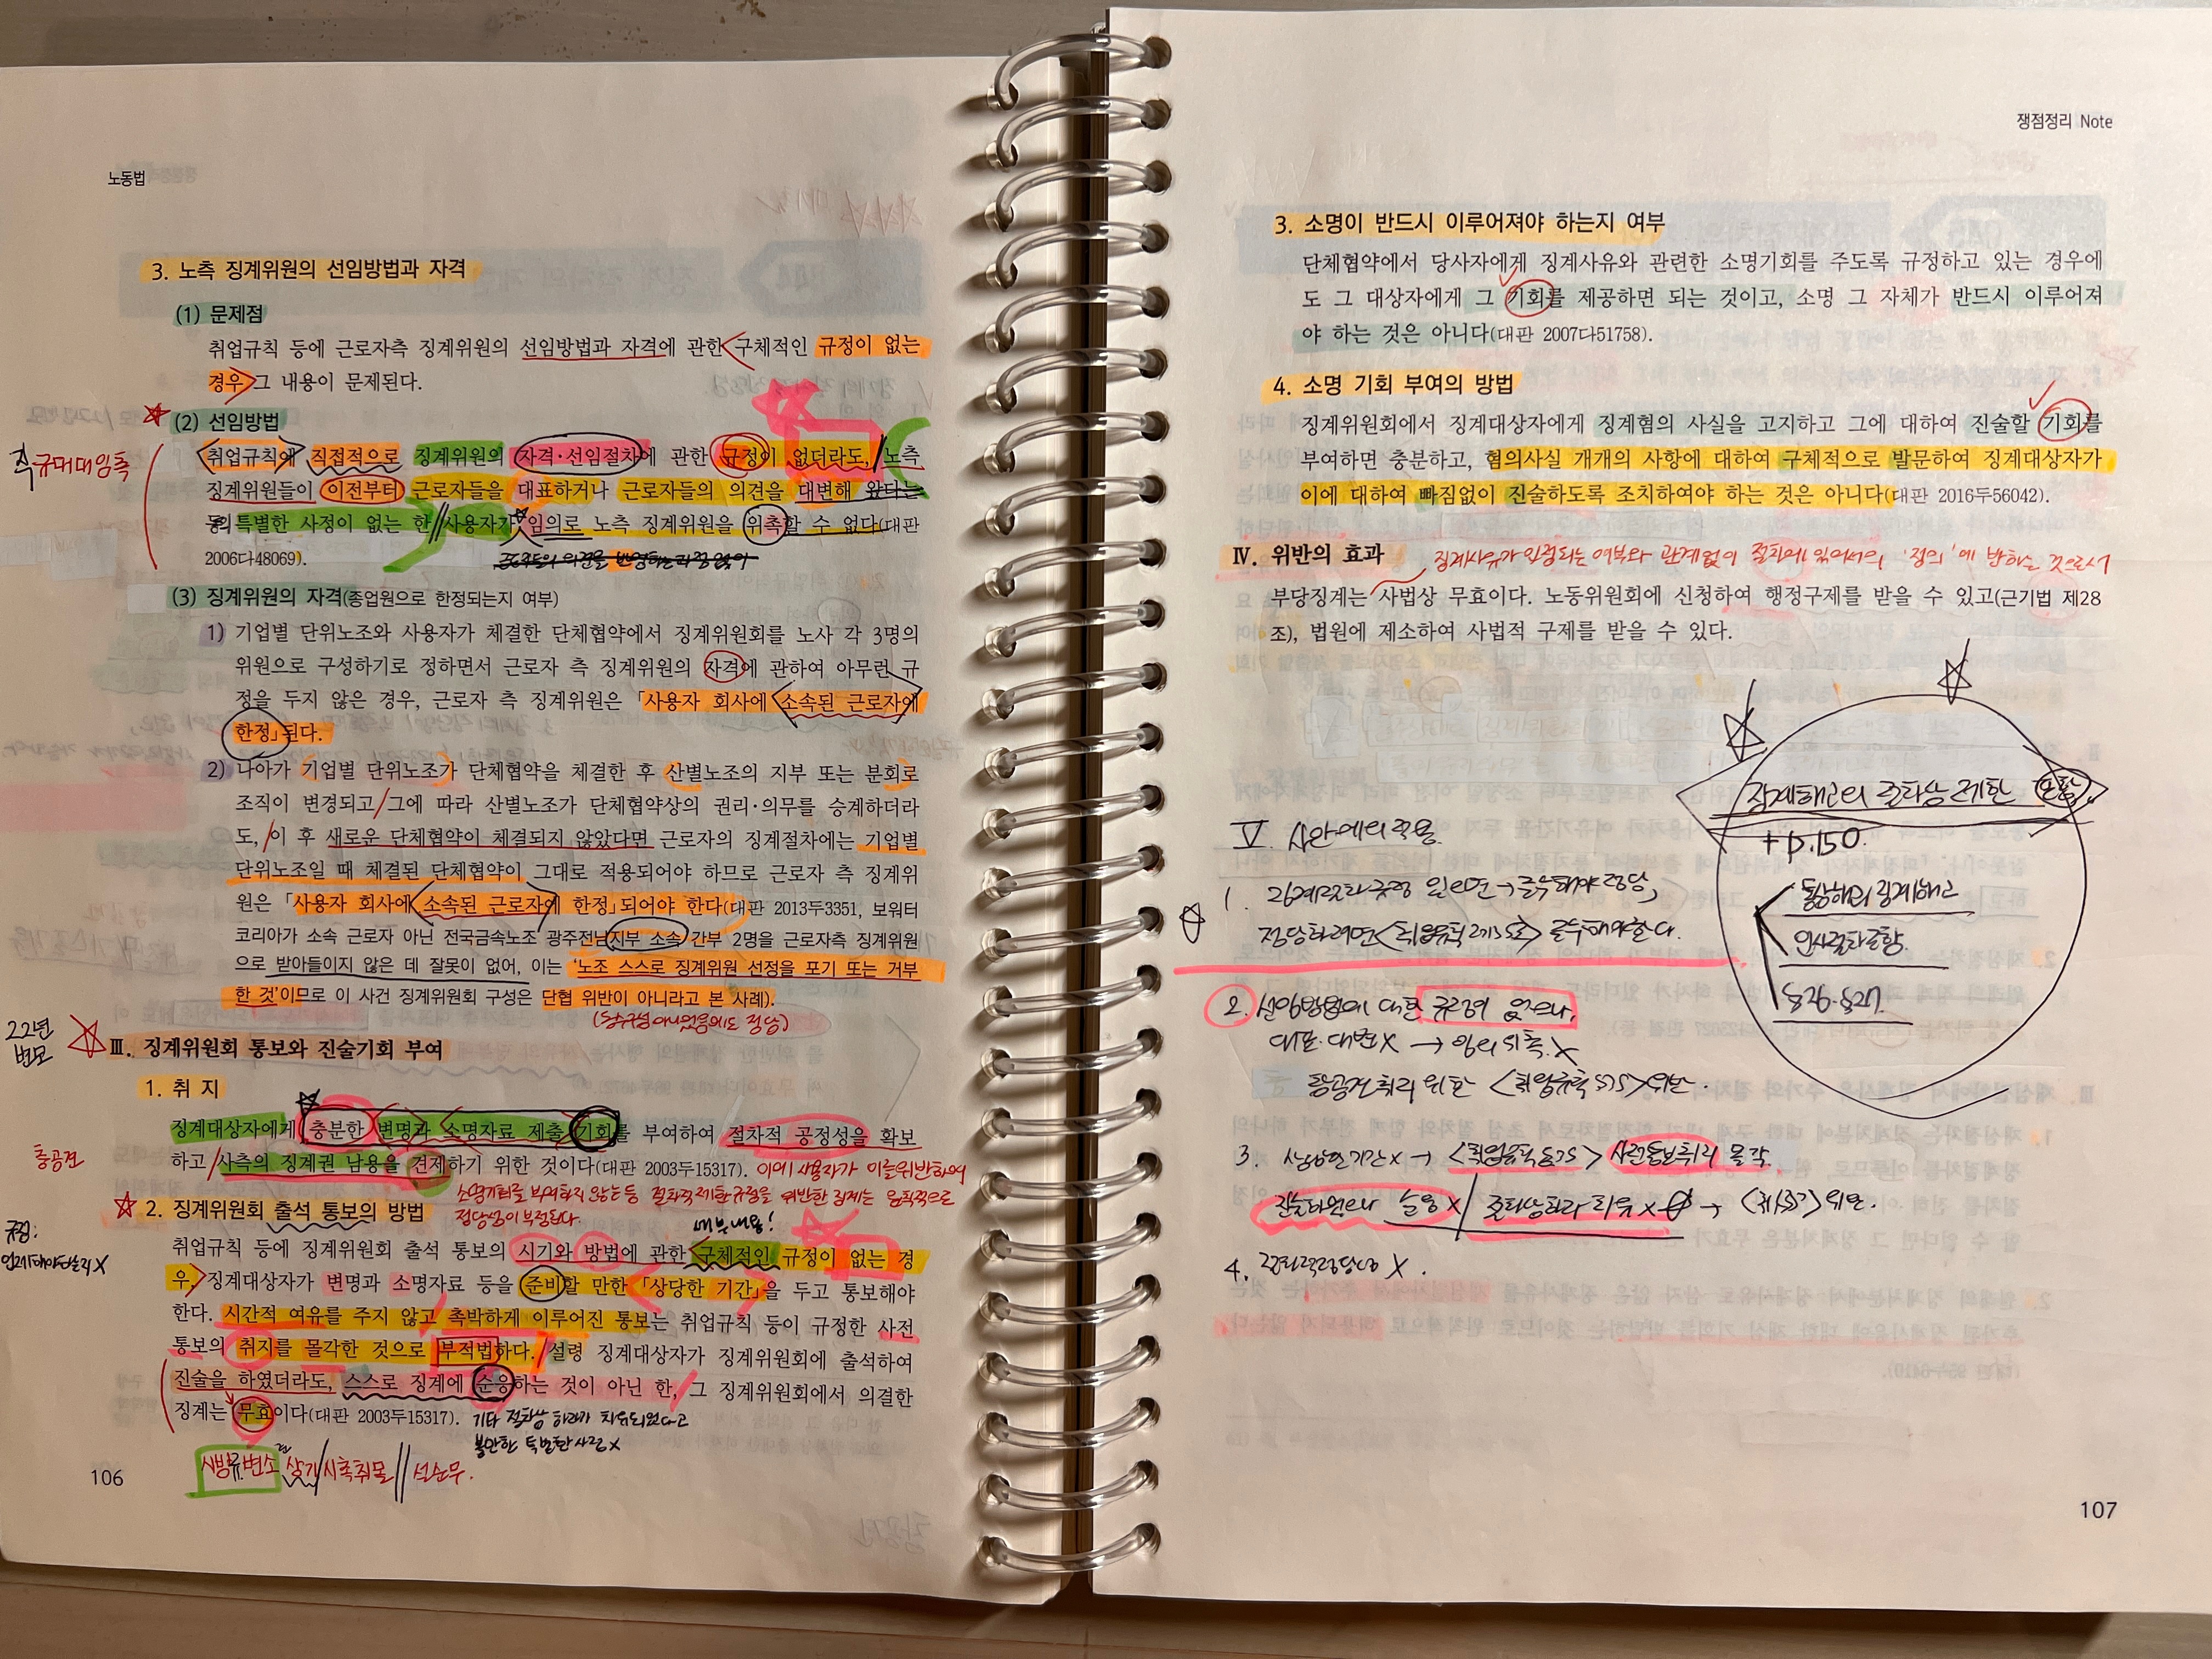 노동법
3. 노측 징계위원의 선임방법과 자격
(1) 문제점
취업규칙 등에 근로자측 징계위원의 선임방법과 자격에 관한 구체적인 규정이 없는
경우 그 내용이 문제된다.
(2) 선임방법
직규대대임촉
취업규칙에 직접적으로 징계위원의 자격·선임절차에 관한 규정이 없더라도, 노측
징계위원들이 이전부터 근로자들을 대표하거나 근로자들의 의견을 대변해 왔다는
등의 특별한 사정이 없는 한 사용자가 임의로 노측 징계위원을 위촉할 수 없다(대판
2006다48069).
(3) 징계위원의 자격(종업원으로 한정되는지 여부)
1) 기업별 단위노조와 사용자가 체결한 단체협약에서 징계위원회를 노사 각 3명의
위원으로 구성하기로 정하면서 근로자 측 징계위원의 자격에 관하여 아무런 규
정을 두지 않은 경우, 근로자 측 징계위원은 「사용자 회사에 소속된 근로자에
한정」된다.
2) 나아가 기업별 단위노조가 단체협약을 체결한 후 산별노조의 지부 또는 분회로
조직이 변경되고 그에 따라 산별노조가 단체협약상의 권리·의무를 승계하더라
도, 이 후 새로운 단체협약이 체결되지 않았다면 근로자의 징계절차에는 기업별
단위노조일 때 체결된 단체협약이 그대로 적용되어야 하므로 근로자 측 징계위
원은 「사용자 회사에 소속된 근로자에 한정」되어야 한다(대판 2013두3351, 보워터
코리아가 소속 근로자 아닌 전국금속노조 광주전남지부 소속 간부 2명을 근로자측 징계위원
으로 받아들이지 않은 데 잘못이 없어, 이는 '노조 스스로 징계위원 선정을 포기 또는 거부
한 것'이므로 이 사건 징계위원회 구성은 단협 위반이 아니라고 본 사례).
22년
변모
Ⅲ. 징계위원회 통보와 진술기회 부여
1. 취 지
징계대상자에게 충분한 변명과 소명자료 제출 기회를 부여하여 절차적 공정성을 확보
충공견
하고 사측의 징계권 남용을 견제하기 위한 것이다(대판 2003두15317). 이에 사용자가 이를 위반하여
소명기회를 부여하지 않는 등 절차적 제한규정을 위반한 징계는 원칙적으로
정당성이 부정된다.
2. 징계위원회 출석 통보의 방법
세부내용!
취업규칙 등에 징계위원회 출석 통보의 시기와 방법에 관한 구체적인 규정이 없는 경
우, 징계대상자가 변명과 소명자료 등을 준비할 만한 「상당한 기간」을 두고 통보해야
한다. 시간적 여유를 주지 않고 촉박하게 이루어진 통보는 취업규칙 등이 규정한 사전
통보의 취지를 몰각한 것으로 부적법하다. 설령 징계대상자가 징계위원회에 출석하여
진술을 하였더라도, 스스로 징계에 순응하는 것이 아닌 한, 그 징계위원회에서 의결한
징계는 무효이다(대판 2003두15317). 기타 절차상 하자가 치유되었다고
볼만한 특별한 사정 X
시방규변소 상기/시촉취몰 // 설순무.
106
쟁점정리 Note
3. 소명이 반드시 이루어져야 하는지 여부
단체협약에서 당사자에게 징계사유와 관련한 소명기회를 주도록 규정하고 있는 경우에
도 그 대상자에게 그 기회를 제공하면 되는 것이고, 소명 그 자체가 반드시 이루어져
야 하는 것은 아니다(대판 2007다51758).
4. 소명 기회 부여의 방법
징계위원회에서 징계대상자에게 징계혐의 사실을 고지하고 그에 대하여 진술할 기회를
부여하면 충분하고, 혐의사실 개개의 사항에 대하여 구체적으로 발문하여 징계대상자가
이에 대하여 빠짐없이 진술하도록 조치하여야 하는 것은 아니다(대판 2016두56042).
Ⅳ. 위반의 효과
징계사유가 인정되는 여부와 관계없이 절차에 있어서의 '정의'에 반하는 것으로서
부당징계는 사법상 무효이다. 노동위원회에 신청하여 행정구제를 받을 수 있고(근기법 제28
조), 법원에 제소하여 사법적 구제를 받을 수 있다.
징계해고의 절차상 제한 포함
+ p.150.
통상해고 징계해고
인사절차포함.
§26. §27.
Ⅴ 사안에의 적용
1. 징계절차 규정 있으면 → 준수해야 정당,
정당하려면 <취업규칙 제35조> 준수해야한다.
2. 선임방법에 대한 규정이 없으나,
대표·대변X → 임의위촉X
충공견취지 위한 <취업규칙§35> 위반.
3. 상당한 기간X → <취업규칙§35> 사전통보취지 몰각.
진술하였으나 순응X / 절차상하자 치유X → 위반.
4. 절차적정당성 X.
107